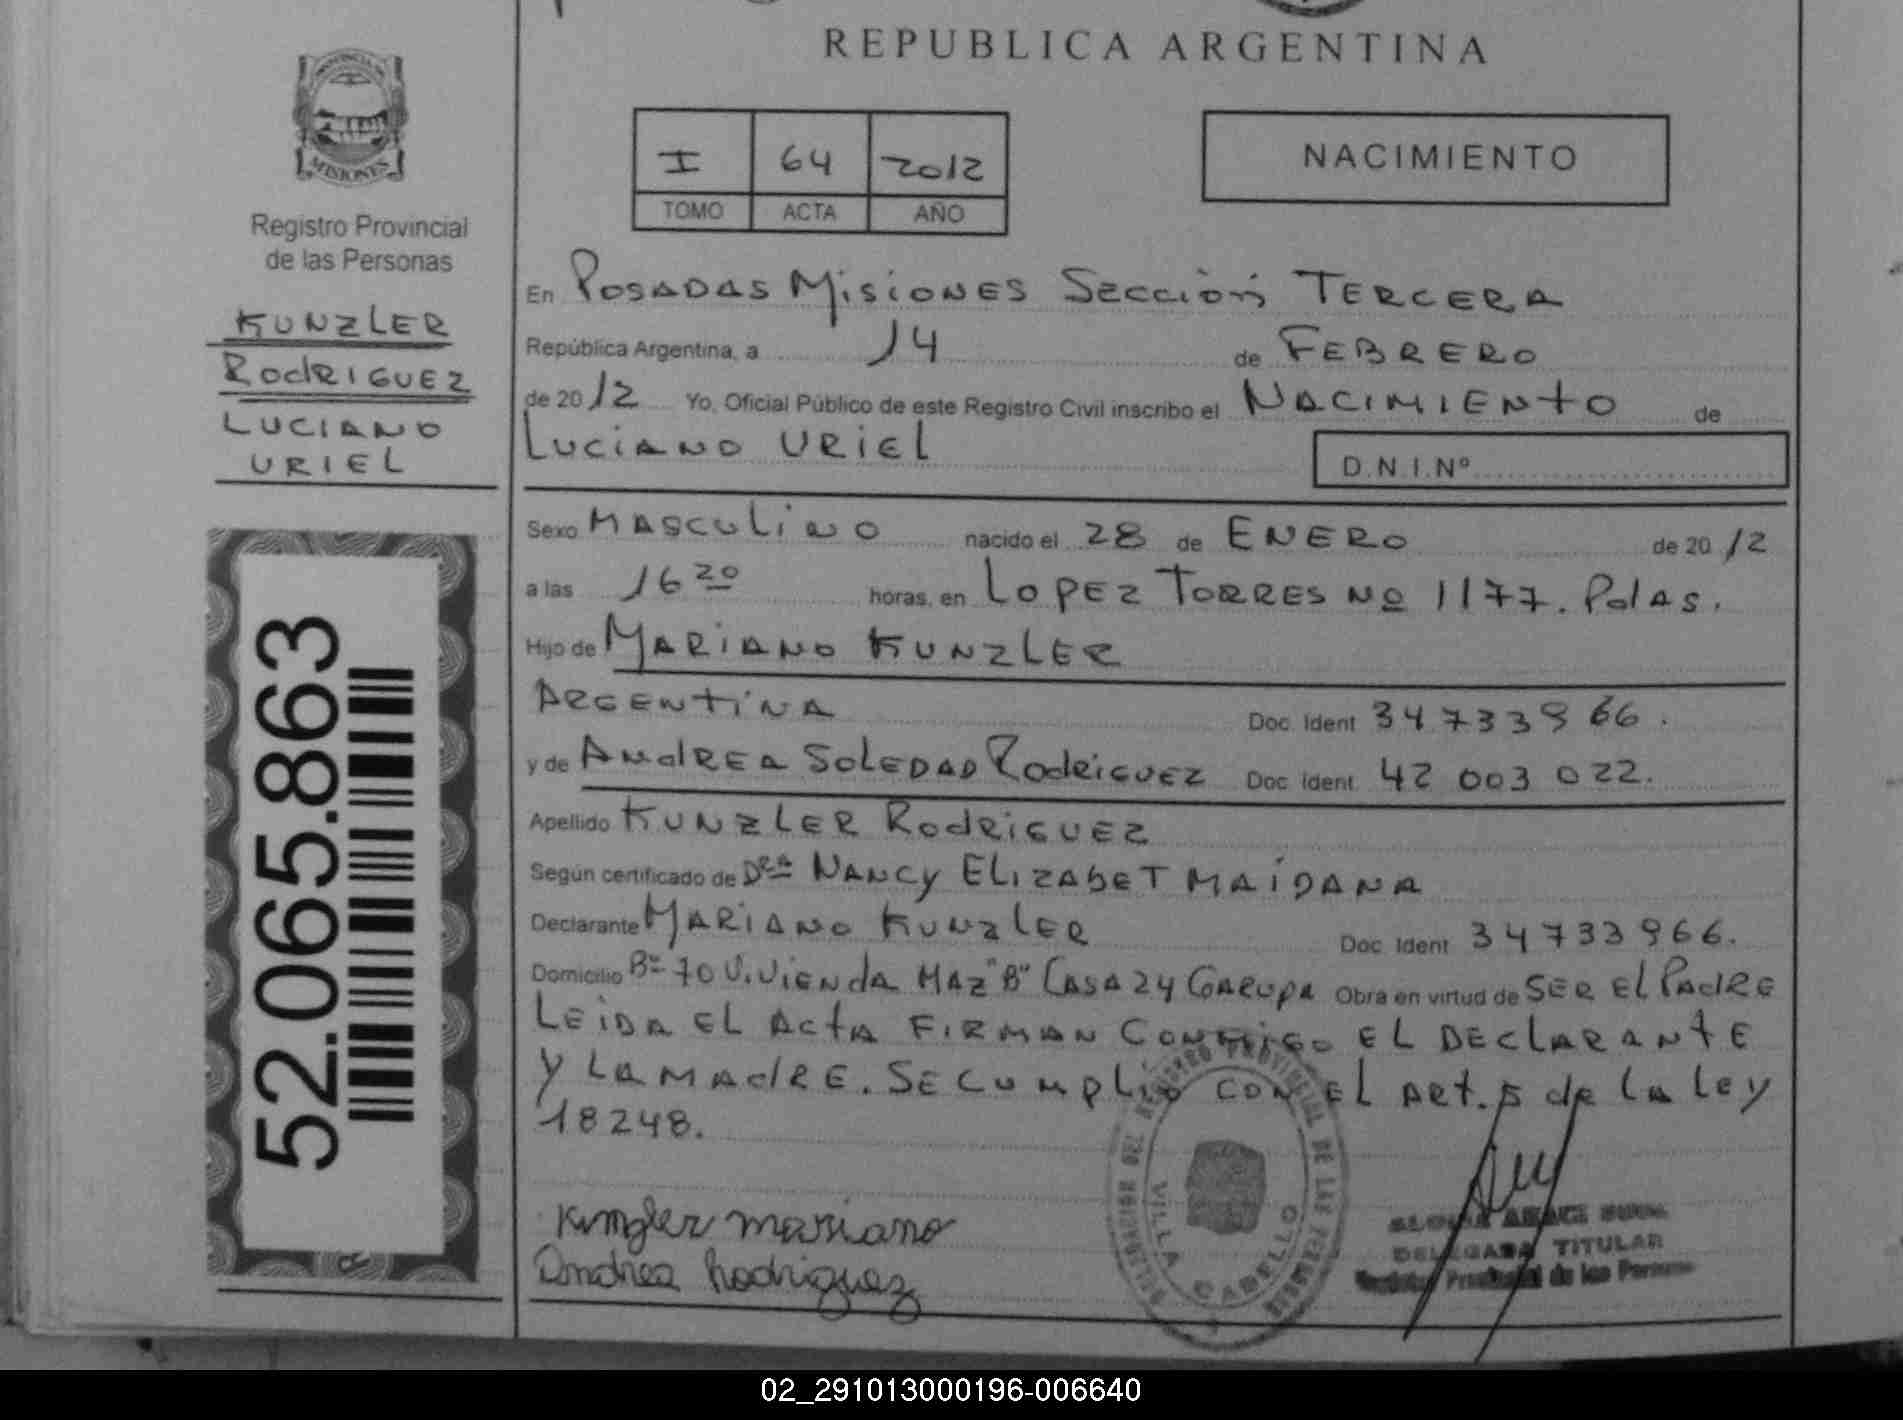 REPUBLICA ARGENTINA
PROVINCIA DE
MISIONES
Registro Provincial
de las Personas
KUNZLER
RodRIGUEZ
LUCIANO
URIEL
52.065.863
I 64 2012
TOMO ACTA AÑO
NACIMIENTO
En POSADAS MISIONES Sección TERCERA
República Argentina, a 14 de FEBRERO
de 2012 Yo, Oficial Público de este Registro Civil inscribo el NACIMIENTO de
LUCIANO URIEL
D.N.I.Nº
Sexo MASCULINO nacido el 28 de ENERO de 2012
a las 16 20 horas, en LOPEZ TORRES Nº 1177. Pdas.
Hijo de MARIANO KUNZLER
ARGENTINA Doc. Ident 34733966.
y de ANdREA SOLEDAD RodRIGUEZ Doc. Ident. 42 003 022.
Apellido KUNZLER RodRIGUEZ
Según certificado de Dra NANCY ELIZABET MAIDANA
Declarante MARIANO KUNZLER Doc. Ident 34733966.
Domicilio Bº 70 ViViENdA MAZ "B" CASA 24 GARUPA Obra en virtud de SER El PAdRE
LEIDA EL ActA FIRMAN CONMIGO EL DECLARANtE
Y LA MAdRE. SE CUMPLIÓ CON EL ARt. 5 de LA LeY
18248.
Kunzler Mariano
Andrea Rodriguez
REGISTRO PROVINCIAL DE LAS PERSONAS
VILLA CABELLO
DELEGADA TITULAR
Registro Provincial de las Personas
02_291013000196-006640